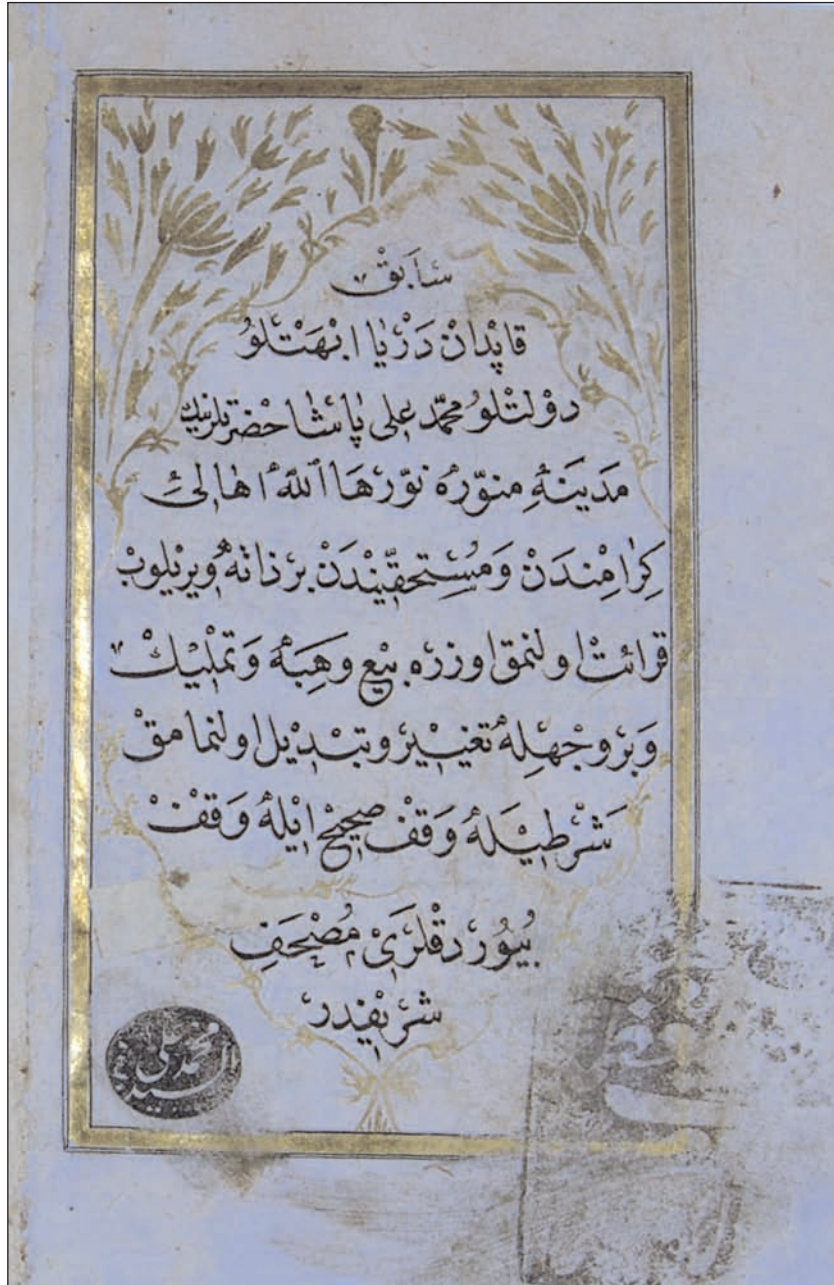 سَابِقْ
قاپْدانْ دَرْيَا اُبَّهَتْلُو
دَوْلَتْلُو محمّد علی پَاشَا حَضْرَتلرينك
مَدينَهِٔ منوّرَه نَوَّرَهَا اللّٰهُ اهَالئِ
كِرَامِنْدَنْ وَمُسْتَحِقّينْدَنْ بِرْ ذَاتَهْ وِيرِيلُوبْ
قرائتْ اولنمق اوزره بَيْع وَهِبَهْ وَتمْليكْ
وَبِرْ وَجْهِلَهْ تغييرْ و تبْديل اولنمامقْ
شَرْطِيْلَهْ وَقفْ صحيحْ ايْلَهْ وَقفْ
بُيُورْدقْلَرِی مُصْحَفِ
شريفْدِرْ
السيد محمد علی